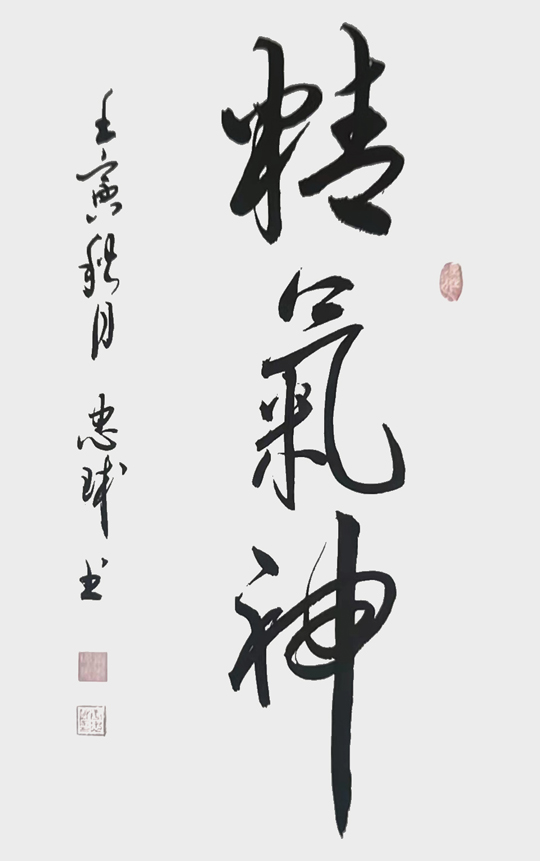 精氣神
壬寅秋月 忠球书